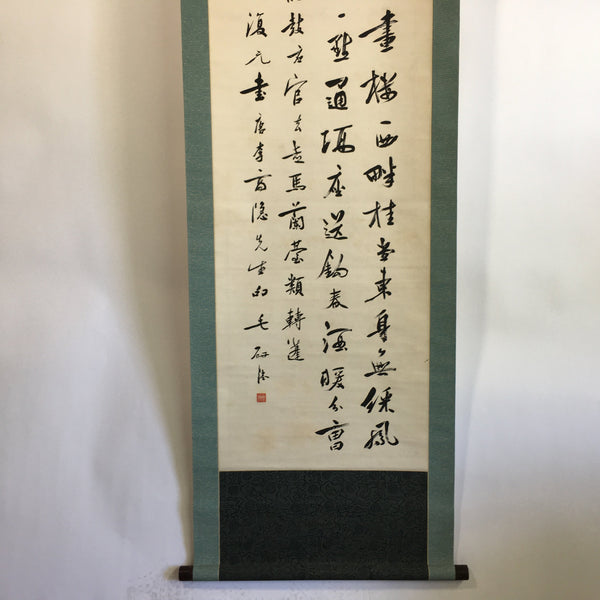 畫樓西畔桂堂東身無綵鳳
一點通隔座送鈎春酒暖分曹
鼓应官去走馬蘭臺類轉蓬
復元書唐李商隱先生句毛研